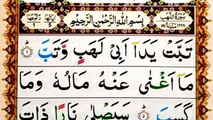 بِسْمِ اللّٰهِ الرَّحْمٰنِ الرَّحِيْمِ
تَبَّتْ يَدَاۤ اَبِيْ لَهَبٍ وَّتَبَّ
مَاۤ اَغْنٰى عَنْهُ مَالُهٗ وَمَا
كَسَبَ سَيَصْلٰى نَارًا ذَاتَ